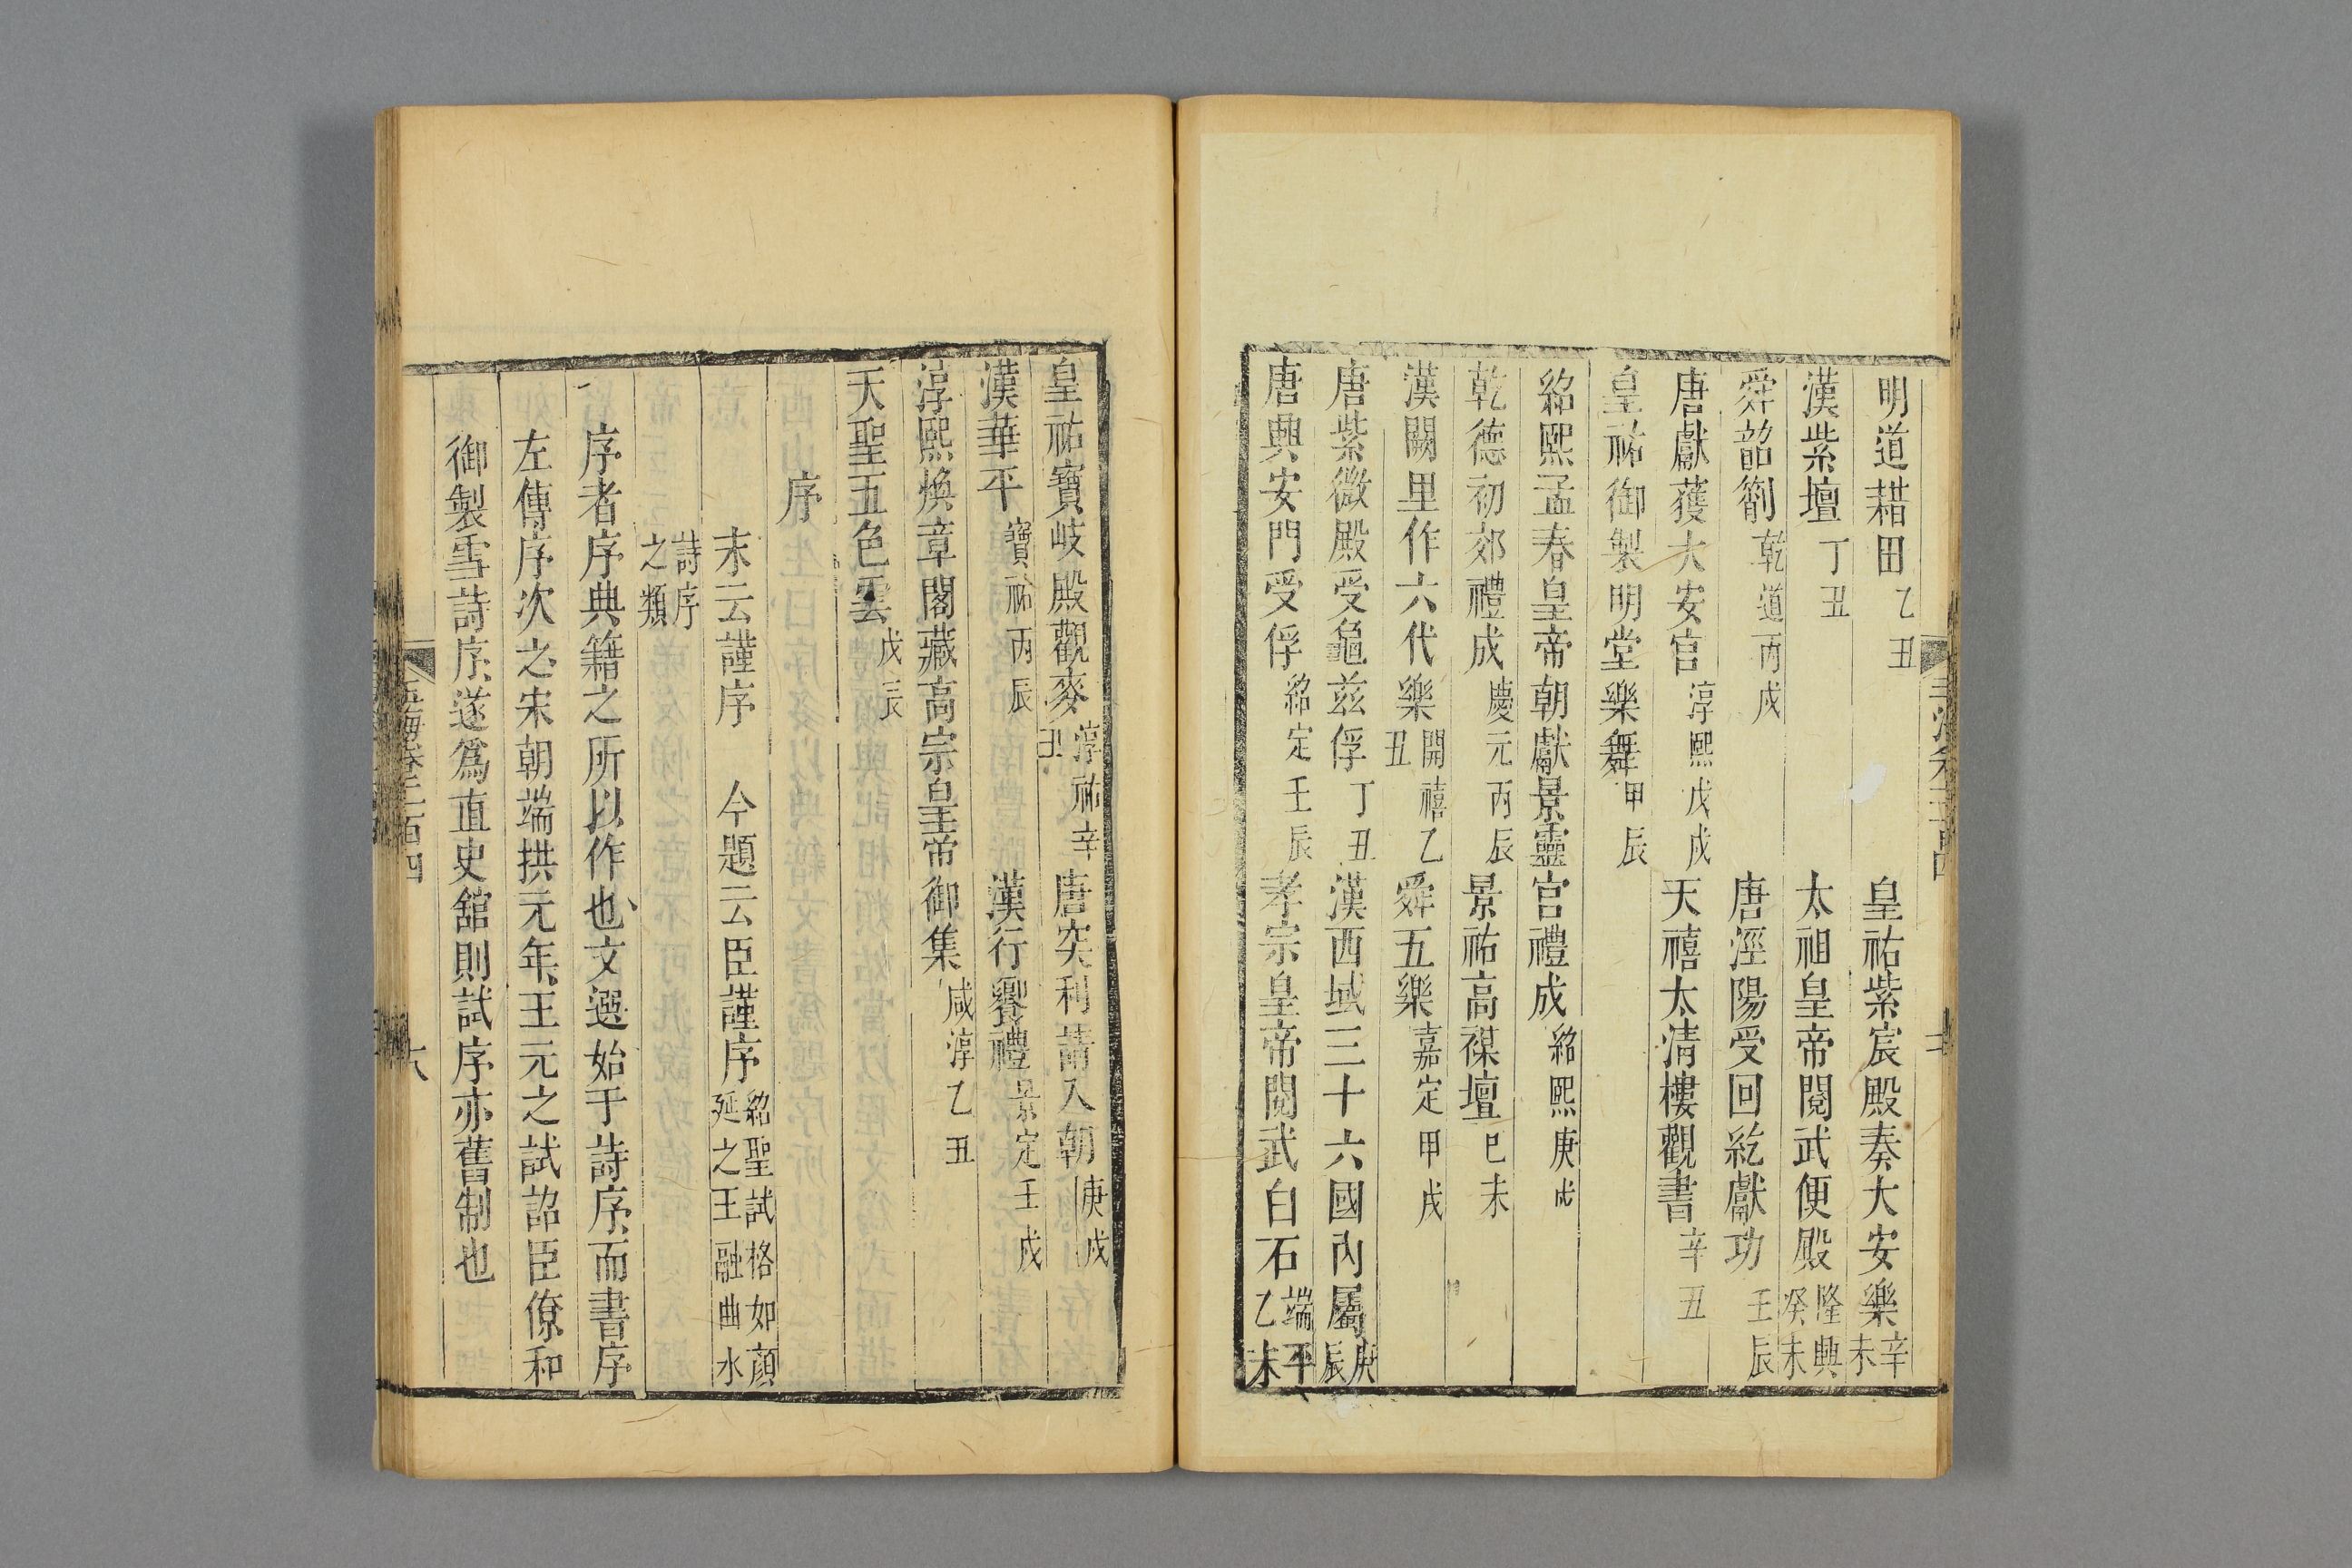 明道耤田乙丑　皇祐紫宸殿奏大安樂辛未
漢紫壇丁丑　太祖皇帝閱武便殿隆興癸未
舜韶箾乾道丙戌　唐涇陽受回紇獻功壬辰
唐獻獲大安宮淳熙戊戌　天禧太清樓觀書辛丑
皇祐御製明堂樂舞甲辰
紹熙孟春皇帝朝獻景靈宮禮成紹熙庚戌
乾德初郊禮成慶元丙辰　景祐高禖壇己未
漢闕里作六代樂開禧乙丑　舜五樂嘉定甲戌
唐紫微殿受龜茲俘丁丑　漢西域三十六國內屬庚辰
唐興安門受俘紹定壬辰　孝宗皇帝閱武白石端平乙未
皇祐寶岐殿觀麥淳祐辛丑　唐突利請入朝庚戌
漢華平寶祐丙辰　漢行饗禮景定壬戌
淳熙煥章閣藏高宗皇帝御集咸淳乙丑
天聖五色雲戊辰
序
末云謹序　今題云臣謹序紹聖試格如顏延之王融曲水
詩序之類
序者序典籍之所以作也文選始于詩序而書序
左傳序次之宋朝端拱元年王元之試詔臣僚和
御製雪詩序遂爲直史館則試序亦舊制也
玉海卷二百四
六